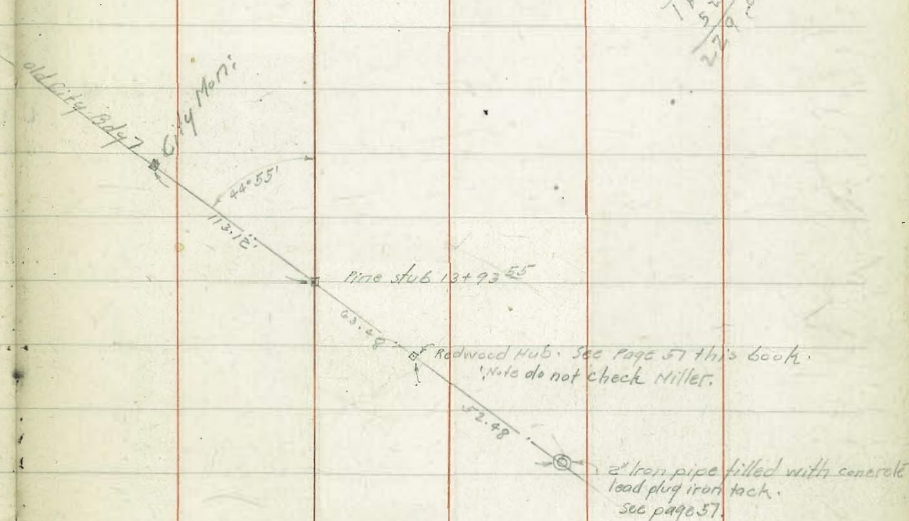 old City Bdy
City Mon:
44°55'
113.12'
Pine stub 13+93 55
63.48
Redwood Hub. See Page 57 this book.
Note do not check Miller.
52.48
2" Iron pipe filled with concrete
lead plug iron tack.
see page 57.